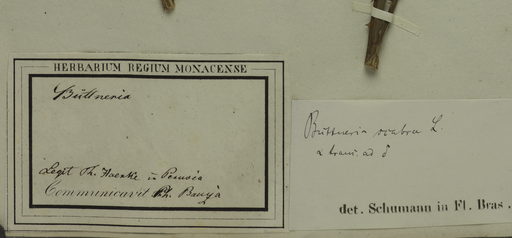 HERBARIUM REGIUM MONACENSE
Büttneria
Legit Th. Haenke in Peruvia
Communicavit Ph.
Büttneria scabra L.
α trans. ad δ
det. Schumann in Fl. Bras.